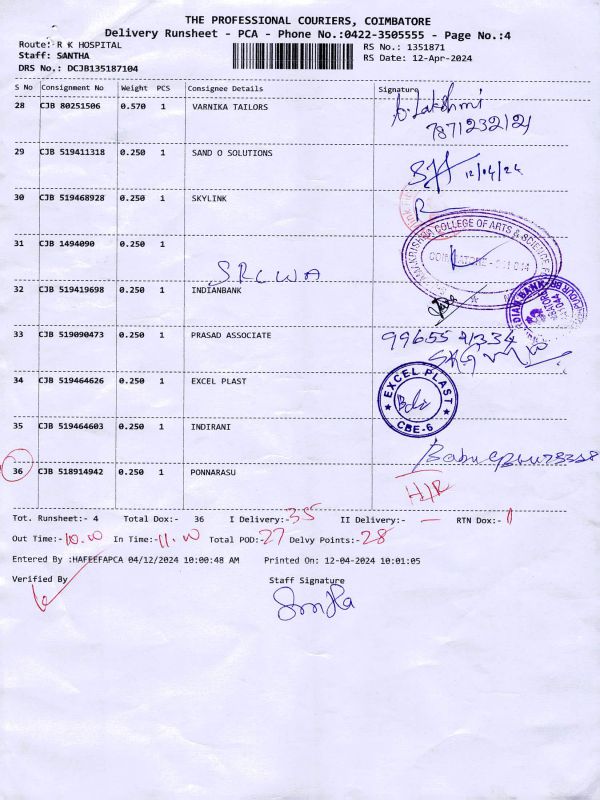 THE PROFESSIONAL COURIERS, COIMBATORE
Delivery Runsheet - PCA - Phone No.:0422-3505555 - Page No.:4
Route: R K HOSPITAL
RS No.: 1351871
Staff: SANTHA
RS Date: 12-Apr-2024
DRS No.: DCJB135187104
S No Consignment No Weight PCS Consignee Details Signature
28 CJB 80251506 0.570 1 VARNIKA TAILORS
Lakshmi
7871232121
29 CJB 519411318 0.250 1 SAND O SOLUTIONS
12/04/24
30 CJB 519468928 0.250 1 SKYLINK
31 CJB 1494090 0.250 1
COLLEGE OF ARTS & SCIENCE
SRCWA
32 CJB 519419698 0.250 1 INDIANBANK
33 CJB 519090473 0.250 1 PRASAD ASSOCIATE
99655 41334
34 CJB 519464626 0.250 1 EXCEL PLAST
EXCEL PLAST
CBE-6
35 CJB 519464603 0.250 1 INDIRANI
Babu
36 CJB 518914942 0.250 1 PONNARASU
H/R
Tot. Runsheet:- 4 Total Dox:- 36 I Delivery:- 35 II Delivery:- — RTN Dox:- 1
Out Time:- 10.00 In Time:- 11.00 Total POD:- 27 Delvy Points:- 28
Entered By :HAFEEFAPCA 04/12/2024 10:00:48 AM Printed On: 12-04-2024 10:01:05
Verified By Staff Signature